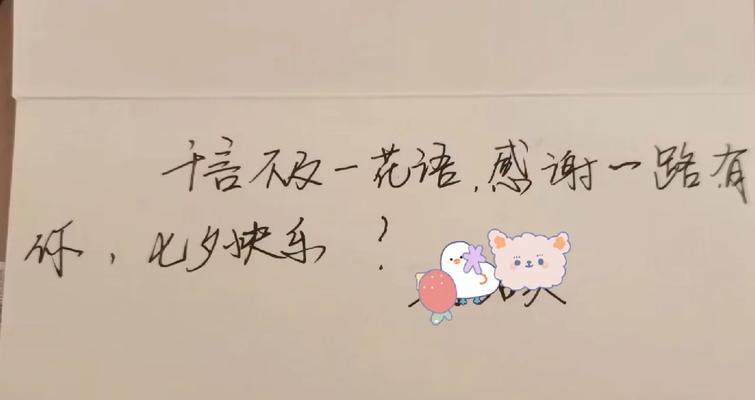 千言不及一花语，感谢一路有
你，七夕快乐？